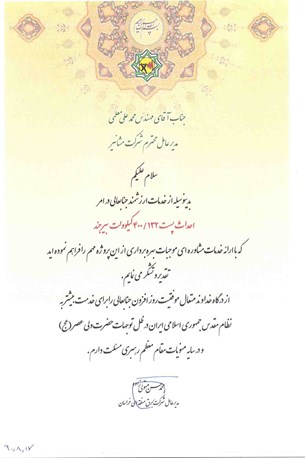 جناب آقای مهندس محمد علی معلمی
مدیرعامل محترم شرکت مشانیر
سلام علیکم
بدینوسیله از خدمات ارزشمند جنابعالی در امر
احداث پست ۴۰۰/۱۳۲ کیلوولت بیرجند
که با ارائه خدمات مشاوره ای موجبات بهره برداری از این پروژه مهم را فراهم نموده اید
تقدیر و تشکر می نمایم.
از درگاه خداوند متعال موفقیت روز افزون جنابعالی را برای خدمت بیشتر به
نظام مقدس جمهوری اسلامی ایران در ظل توجهات حضرت ولی عصر (عج)
و در سایه منویات مقام معظم رهبری مسئلت دارم.
مدیرعامل شرکت برق منطقه ای خراسان
۹۰،۸،۱۷